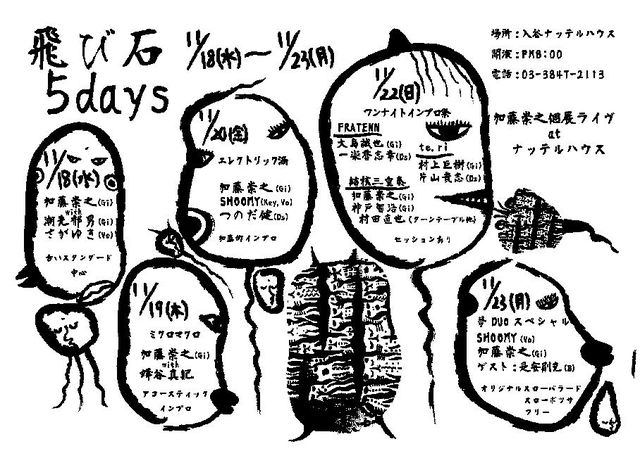 飛び石
5days
11/18(水)〜11/23(月)
場所：入谷ナッテルハウス
開演：PM8:00
電話：03-3847-2113
加藤崇之個展ライヴ
at
ナッテルハウス
11/18(水)
加藤崇之(Gi)
with
潮先郁男(Gi)
さがゆき(Vo)
古いスタンダード
中心
11/19(木)
ミクロマクロ
加藤崇之(Gi)
with
蜂谷真紀
アコースティック
インプロ
11/20(金)
エレクトリック渦
加藤崇之(Gi)
SHOOMY(Key,Vo)
つのだ健(Ds)
和気的インプロ
11/22(日)
ワンナイトインプロ祭
FRATENN
大島誠也(Gi)
一楽誉志幸(Ds)
te.ri
村上巨樹(Gi)
片山貴志(Ds)
結核三重奏
加藤崇之(Gi)
神戸智浩(Gi)
村田直也(ターンテーブル他)
セッションあり
11/23(月)
夢DUOスペシャル
SHOOMY(Vo)
加藤崇之(Gi)
ゲスト：是安則克(B)
オリジナルスローバラード
スローボッサ
フリー